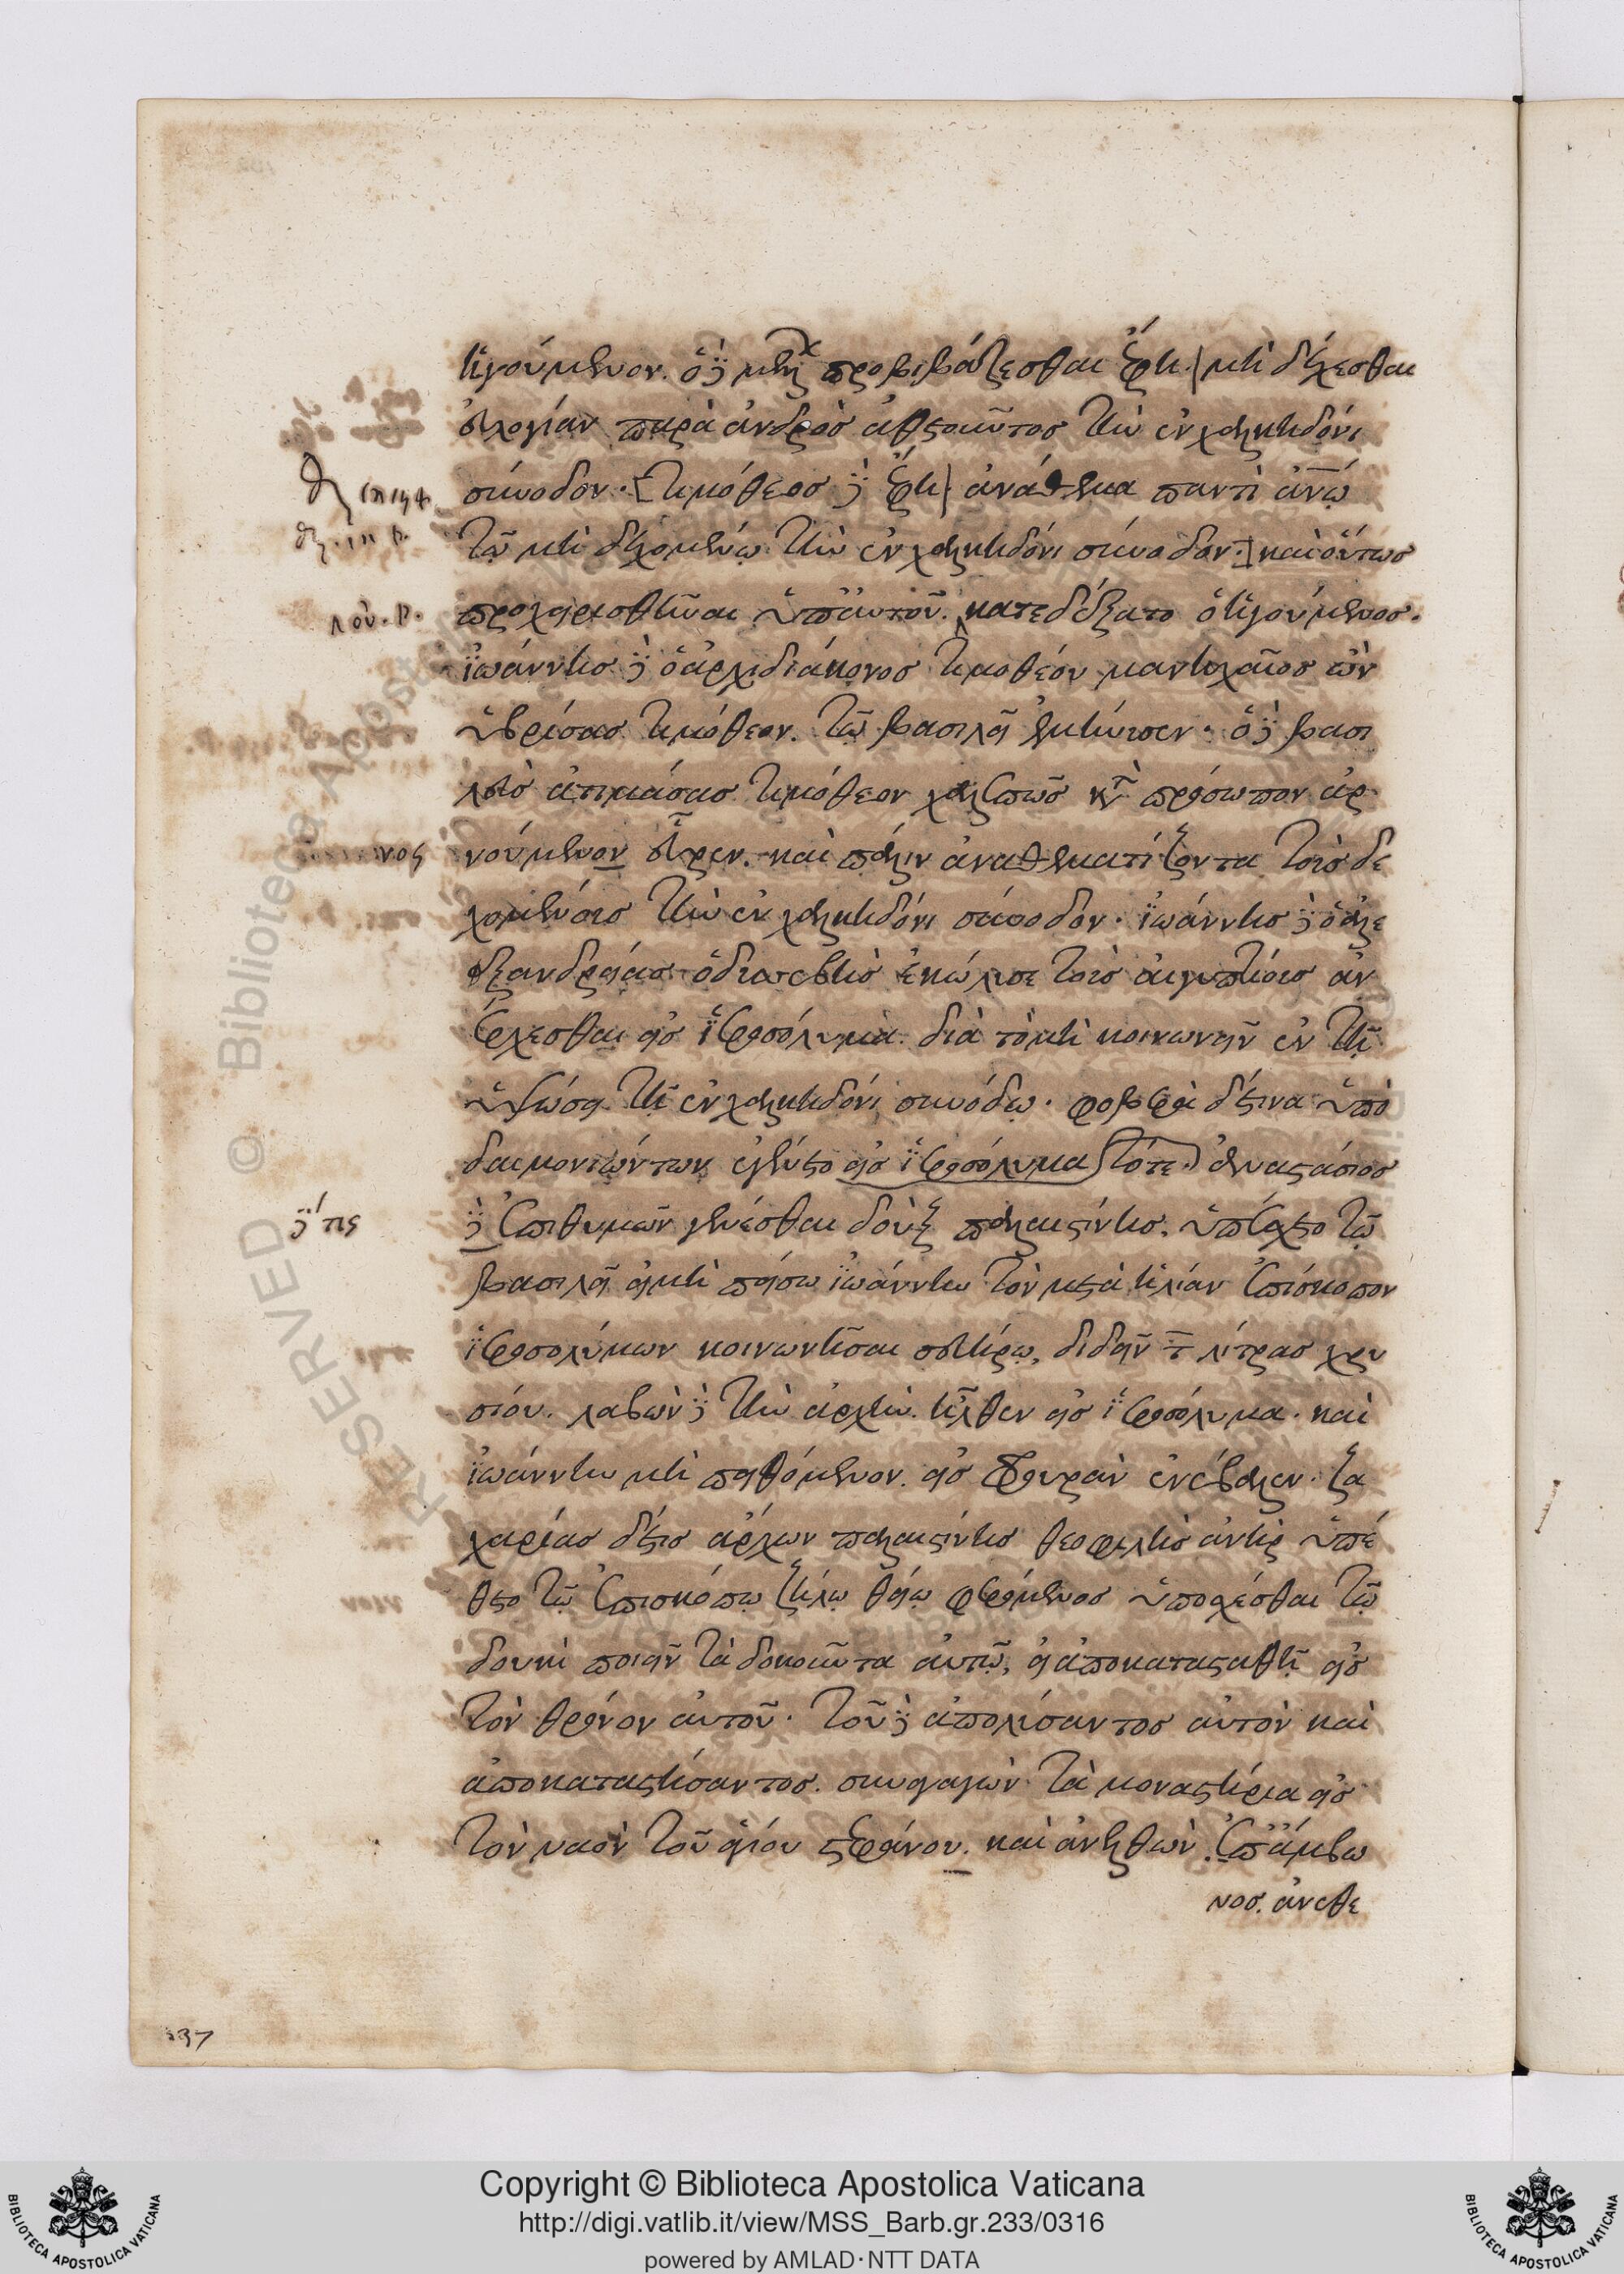 ἡγούμενον. ὁ δὲ μέλλων προβιβάζεσθαι ἔφη. μὴ δέχεσθαι
εὐλογίαν παρὰ ἀνδρὸς ἀθετοῦντος τὴν ἐν χαλκηδόνι
σύνοδον. τιμόθεος δὲ ἔφη ἀνάθεμα παντὶ ἀν̅ῳ
τῷ μὴ δεχομένῳ τὴν ἐν χαλκηδόνι σύνοδον. καὶ οὕτως
προχειρισθῆναι ὑπ' αὐτοῦ. κατεδέξατο ὁ ἡγούμενος.
ἰωάννης δὲ ὁ ἀρχιδιάκονος τιμοθέου μανιχαῖος ὢν
ὑβρίσας τιμόθεον. τῷ βασιλεῖ ἐμήνυσεν. ὁ δὲ βασι
λεὺς ἀτιμάσας τιμόθεον χαλεπῶς κατὰ πρόσωπον ἀρ
νούμενον εὗρεν. καὶ πάλιν ἀναθεματίζοντα τοὺς δε
χομένους τὴν ἐν χαλκηδόνι σύνοδον. ἰωάννης δὲ ὁ ἀλε
ξανδρείας ὁ δυσσεβὴς ἐκώλυσε τοὺς αἰγυπτίους ἀν
έρχεσθαι εἰς ἱεροσόλυμα. διὰ τὸ μὴ κοινωνεῖν ἐν τῇ
ὑψώσει τῇ ἐν χαλκηδόνι συνόδῳ. φοβερὰ δέ τινα ὑπὸ
δαιμονιώντων ἐγένετο εἰς ἱεροσόλυμα τότε. ἀναστάσιος
δὲ ἐπιθυμῶν γενέσθαι δοὺξ παλαιστίνης. ὑπέσχετο τῷ
βασιλεῖ εἰ μὴ πείσω ἰωάννην τὸν μετὰ ἡλίαν ἐπίσκοπον
ἱεροσολύμων κοινωνῆσαι σευήρῳ, διδεῖν τ̅ λίτρας χρυ
σίου. λαβὼν δὲ τὴν ἀρχὴν. ἦλθεν εἰς ἱεροσόλυμα. καὶ
ἰωάννην μὴ πειθόμενον. εἰς φρουρὰν ἐνέβαλεν. ζα
χαρίας δέ τις ἄρχων παλαιστίνης θεοφιλὴς ἀνὴρ ὑπέ
θετο τῷ ἐπισκόπῳ ζήλῳ θείῳ φερόμενος ὑποσχέσθαι τῷ
δουκὶ ποιεῖν τὰ δοκοῦντα αὐτῷ, εἰ ἀποκατασταθῇ εἰς
τὸν θρόνον αὐτοῦ. τοῦ δὲ ἀπολύσαντος αὐτὸν καὶ
ἀποκαταστήσαντος. συναγαγὼν τὰ μοναστήρια εἰς
τὸν ναὸν τοῦ ἁγίου στεφάνου. καὶ ἀνελθὼν. ἐπ' ἄμβω
νος. ἀνεθε
νος
δέ τις
397
Copyright © Biblioteca Apostolica Vaticana
http://digi.vatlib.it/view/MSS_Barb.gr.233/0316
powered by AMLAD·NTT DATA
BIBLIOTECA APOSTOLICA VATICANA
BIBLIOTECA APOSTOLICA VATICANA